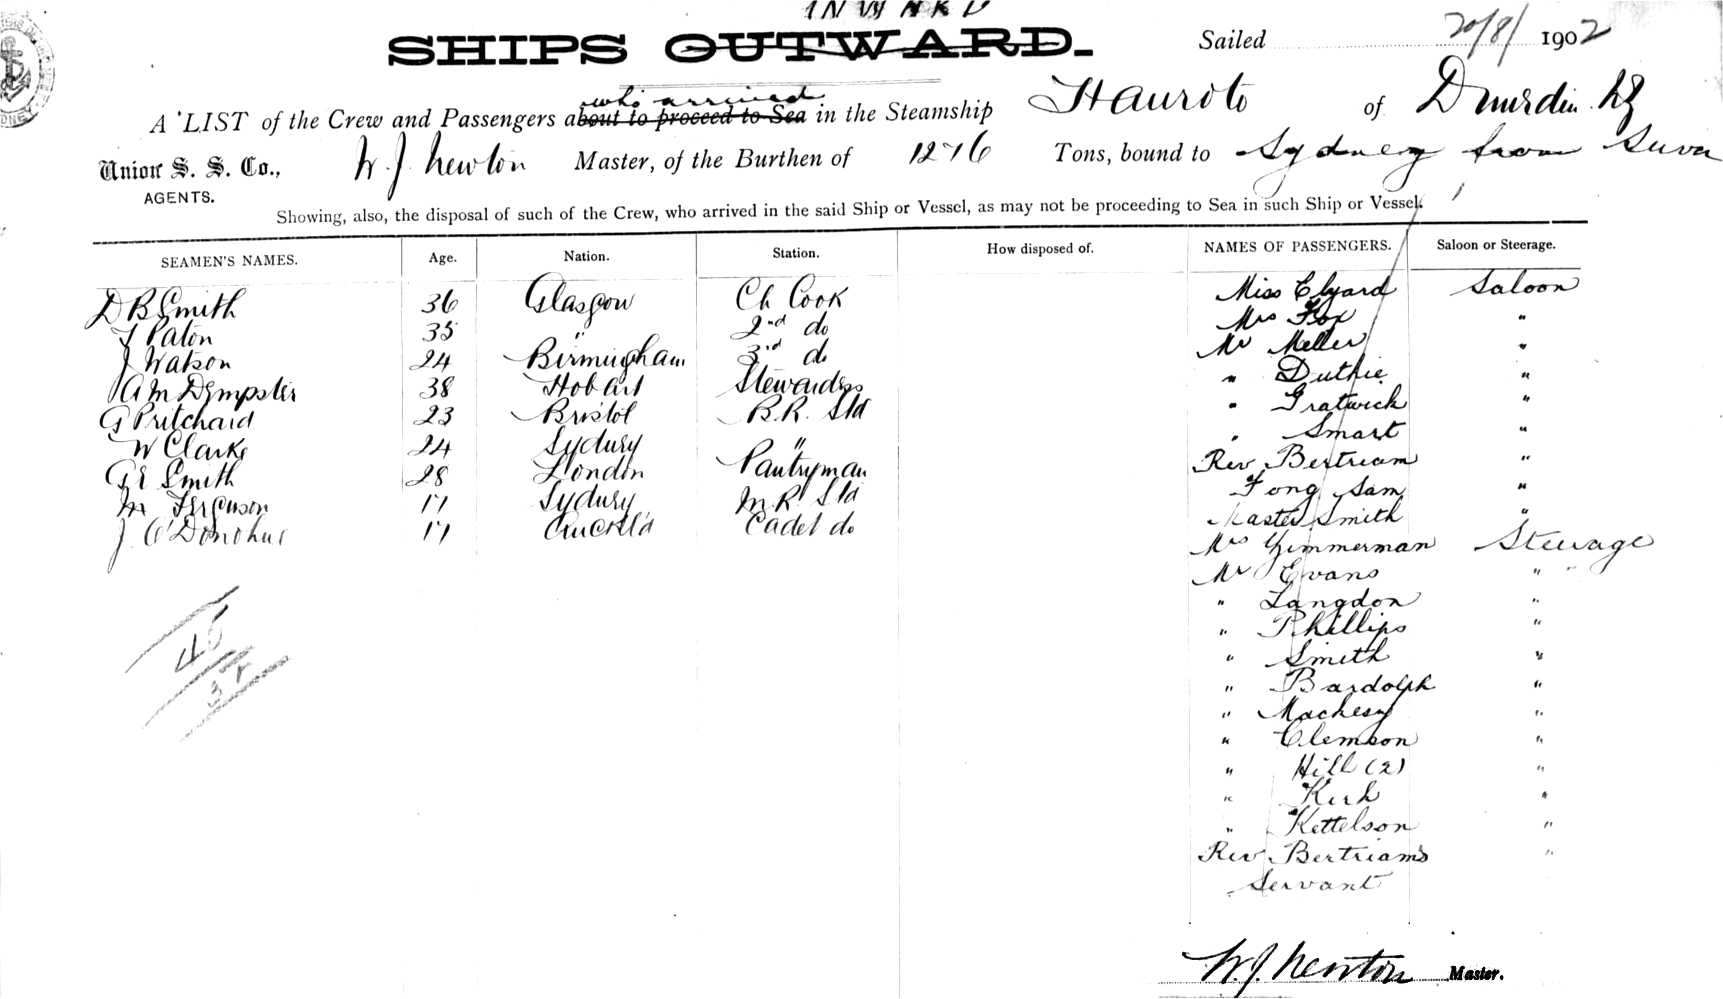 INWARD
SHIPS OUTWARD.
Sailed 20/8/ 1902
who arrived
A LIST of the Crew and Passengers about to proceed to Sea in the Steamship Hauroto of Dunedin NZ
Union S. S. Co., W. J. Newton Master, of the Burthen of 1276 Tons, bound to Sydney from Suva
AGENTS.
Showing, also, the disposal of such of the Crew, who arrived in the said Ship or Vessel, as may not be proceeding to Sea in such Ship or Vessel.
SEAMEN'S NAMES. Age. Nation. Station. How disposed of. NAMES OF PASSENGERS. Saloon or Steerage.
D B Smith 36 Glasgow Ch Cook Miss Elyard Saloon
J Paton 35 " 2nd do Mrs Fox "
J Watson 24 Birmingham 3rd do Mr Meller "
A M Dempster 38 Hobart Stewardess " Duthie "
G Pritchard 23 Bristol B.R. Std " Gratwick "
W Clarke 24 Sydney " " Smart "
G E Smith 28 London Pantryman Rev Bertriam "
M Ferguson 17 Sydney M.R. Std Fong Sam "
J. O'Donohue 17 Auckl'd Cadet do Master Smith "
Mrs Zimmerman Steerage
Mr Evans "
" Langdon "
" Phillips "
" Smith "
" Bardolph "
" Mackesy "
" Clemson "
" Hill (2) "
" Kirk "
" Kettelson "
Rev Bertriam's "
Servant
W. J. Newton Master.